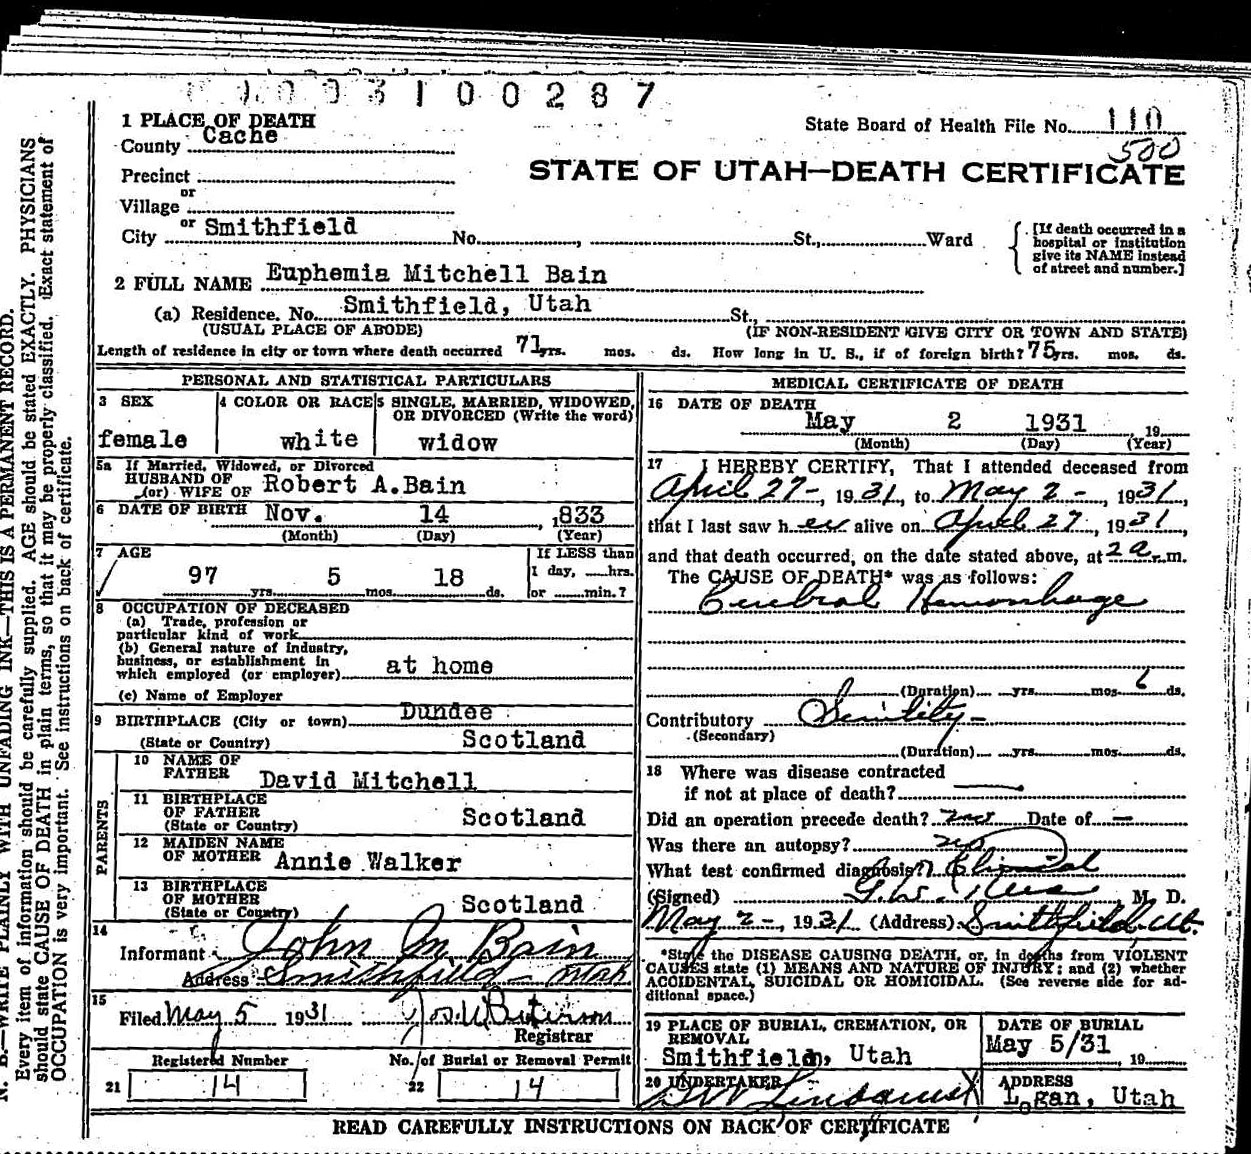 3100287
1 PLACE OF DEATH
County Cache
State Board of Health File No. 110
500
STATE OF UTAH—DEATH CERTIFICATE
Precinct
or
Village
or
City Smithfield No. , St., Ward
[If death occurred in a
hospital or institution
give its NAME instead
of street and number.]
2 FULL NAME Euphemia Mitchell Bain
(a) Residence. No. Smithfield, Utah St.,
(USUAL PLACE OF ABODE) (IF NON-RESIDENT GIVE CITY OR TOWN AND STATE)
Length of residence in city or town where death occurred 71 yrs. mos. ds. How long in U. S., if of foreign birth? 75 yrs. mos. ds.
PERSONAL AND STATISTICAL PARTICULARS
3 SEX
female
4 COLOR OR RACE
white
5 SINGLE, MARRIED, WIDOWED,
OR DIVORCED (Write the word)
widow
5a If Married, Widowed, or Divorced
HUSBAND OF
(or) WIFE OF Robert A.Bain
6 DATE OF BIRTH Nov. 14 , 1833
(Month) (Day) (Year)
7 AGE
97 yrs. 5 mos. 18 ds.
If LESS than
1 day, hrs.
or min.?
8 OCCUPATION OF DECEASED
(a) Trade, profession or
particular kind of work
(b) General nature of industry,
business, or establishment in
which employed (or employer) at home
(c) Name of Employer
9 BIRTHPLACE (City or town) Dundee
(State or Country) Scotland
PARENTS
10 NAME OF
FATHER David Mitchell
11 BIRTHPLACE
OF FATHER
(State or Country) Scotland
12 MAIDEN NAME
OF MOTHER Annie Walker
13 BIRTHPLACE
OF MOTHER
(State or Country) Scotland
14
Informant John M Bain
Address Smithfield Utah
15
Filed May 5 1931
Registrar
Registered Number
21 14
No. of Burial or Removal Permit
22 14
MEDICAL CERTIFICATE OF DEATH
16 DATE OF DEATH
May 2 1931 , 19
(Month) (Day) (Year)
17 I HEREBY CERTIFY, That I attended deceased from
April 27-, 1931, to May 2-, 1931,
that I last saw her alive on April 27, 1931,
and that death occurred, on the date stated above, at 2 a. m.
The CAUSE OF DEATH* was as follows:
Cerebral Hemorrhage
(Duration) yrs. mos. 6 ds.
Contributory Senility-
(Secondary)
(Duration) yrs. mos. ds.
18 Where was disease contracted
if not at place of death?
Did an operation precede death? no Date of —
Was there an autopsy? no
What test confirmed diagnosis? Clinical
(Signed) G. W. M. D.
May 2-, 1931 (Address) Smithfield Ut.
*State the DISEASE CAUSING DEATH, or, in deaths from VIOLENT
CAUSES state (1) MEANS AND NATURE OF INJURY; and (2) whether
ACCIDENTAL, SUICIDAL OR HOMICIDAL. (See reverse side for ad-
ditional space.)
19 PLACE OF BURIAL, CREMATION, OR
REMOVAL
Smithfield, Utah
DATE OF BURIAL
May 5/31 19
20 UNDERTAKER
Lindquist
ADDRESS
Logan, Utah
READ CAREFULLY INSTRUCTIONS ON BACK OF CERTIFICATE
N. B.—WRITE PLAINLY WITH UNFADING INK—THIS IS A PERMANENT RECORD.
Every item of information should be carefully supplied. AGE should be stated EXACTLY. PHYSICIANS
should state CAUSE OF DEATH in plain terms, so that it may be properly classified. Exact statement of
OCCUPATION is very important. See instructions on back of certificate.